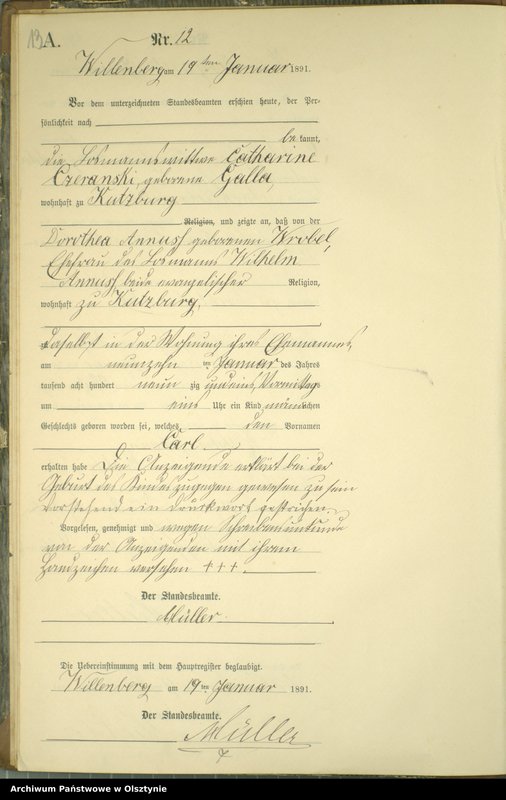 13 A.
Nr. 12
Willenberg am 19ten Januar 1891.
Vor dem unterzeichneten Standesbeamten erschien heute, der Per-
sönlichkeit nach
be kannt,
die Losmannswittwe Catharine
Czeranski, geborene Galla,
wohnhaft zu Kutzburg
Religion, und zeigte an, daß von der
Dorothea Annuss geborenen Wrobel,
Ehefrau des Losmanns Wilhelm
Annuss beide evangelischer Religion,
wohnhaft zu Kutzburg,
daselbst in der Wohnung ihres Ehemannes,
am neunzehn ten Januar des Jahres
tausend acht hundert neun zig und eins, Vormittags
um eins Uhr ein Kind männlichen
Geschlechts geboren worden sei, welches den Vornamen
Carl
erhalten habe Die Anzeigende erklärt bei der
Geburt des Kindes zugegen gewesen zu sein
Vorstehend ein Druckwort gestrichen.
Vorgelesen, genehmigt und wegen Schreibensunkunde
von der Anzeigenden mit ihrem
Handzeichen versehen +++.
Der Standesbeamte.
Müller.
Die Uebereinstimmung mit dem Hauptregister beglaubigt.
Willenberg am 19ten Januar 1891.
Der Standesbeamte.
Müller
Archiwum Państwowe w Olsztynie